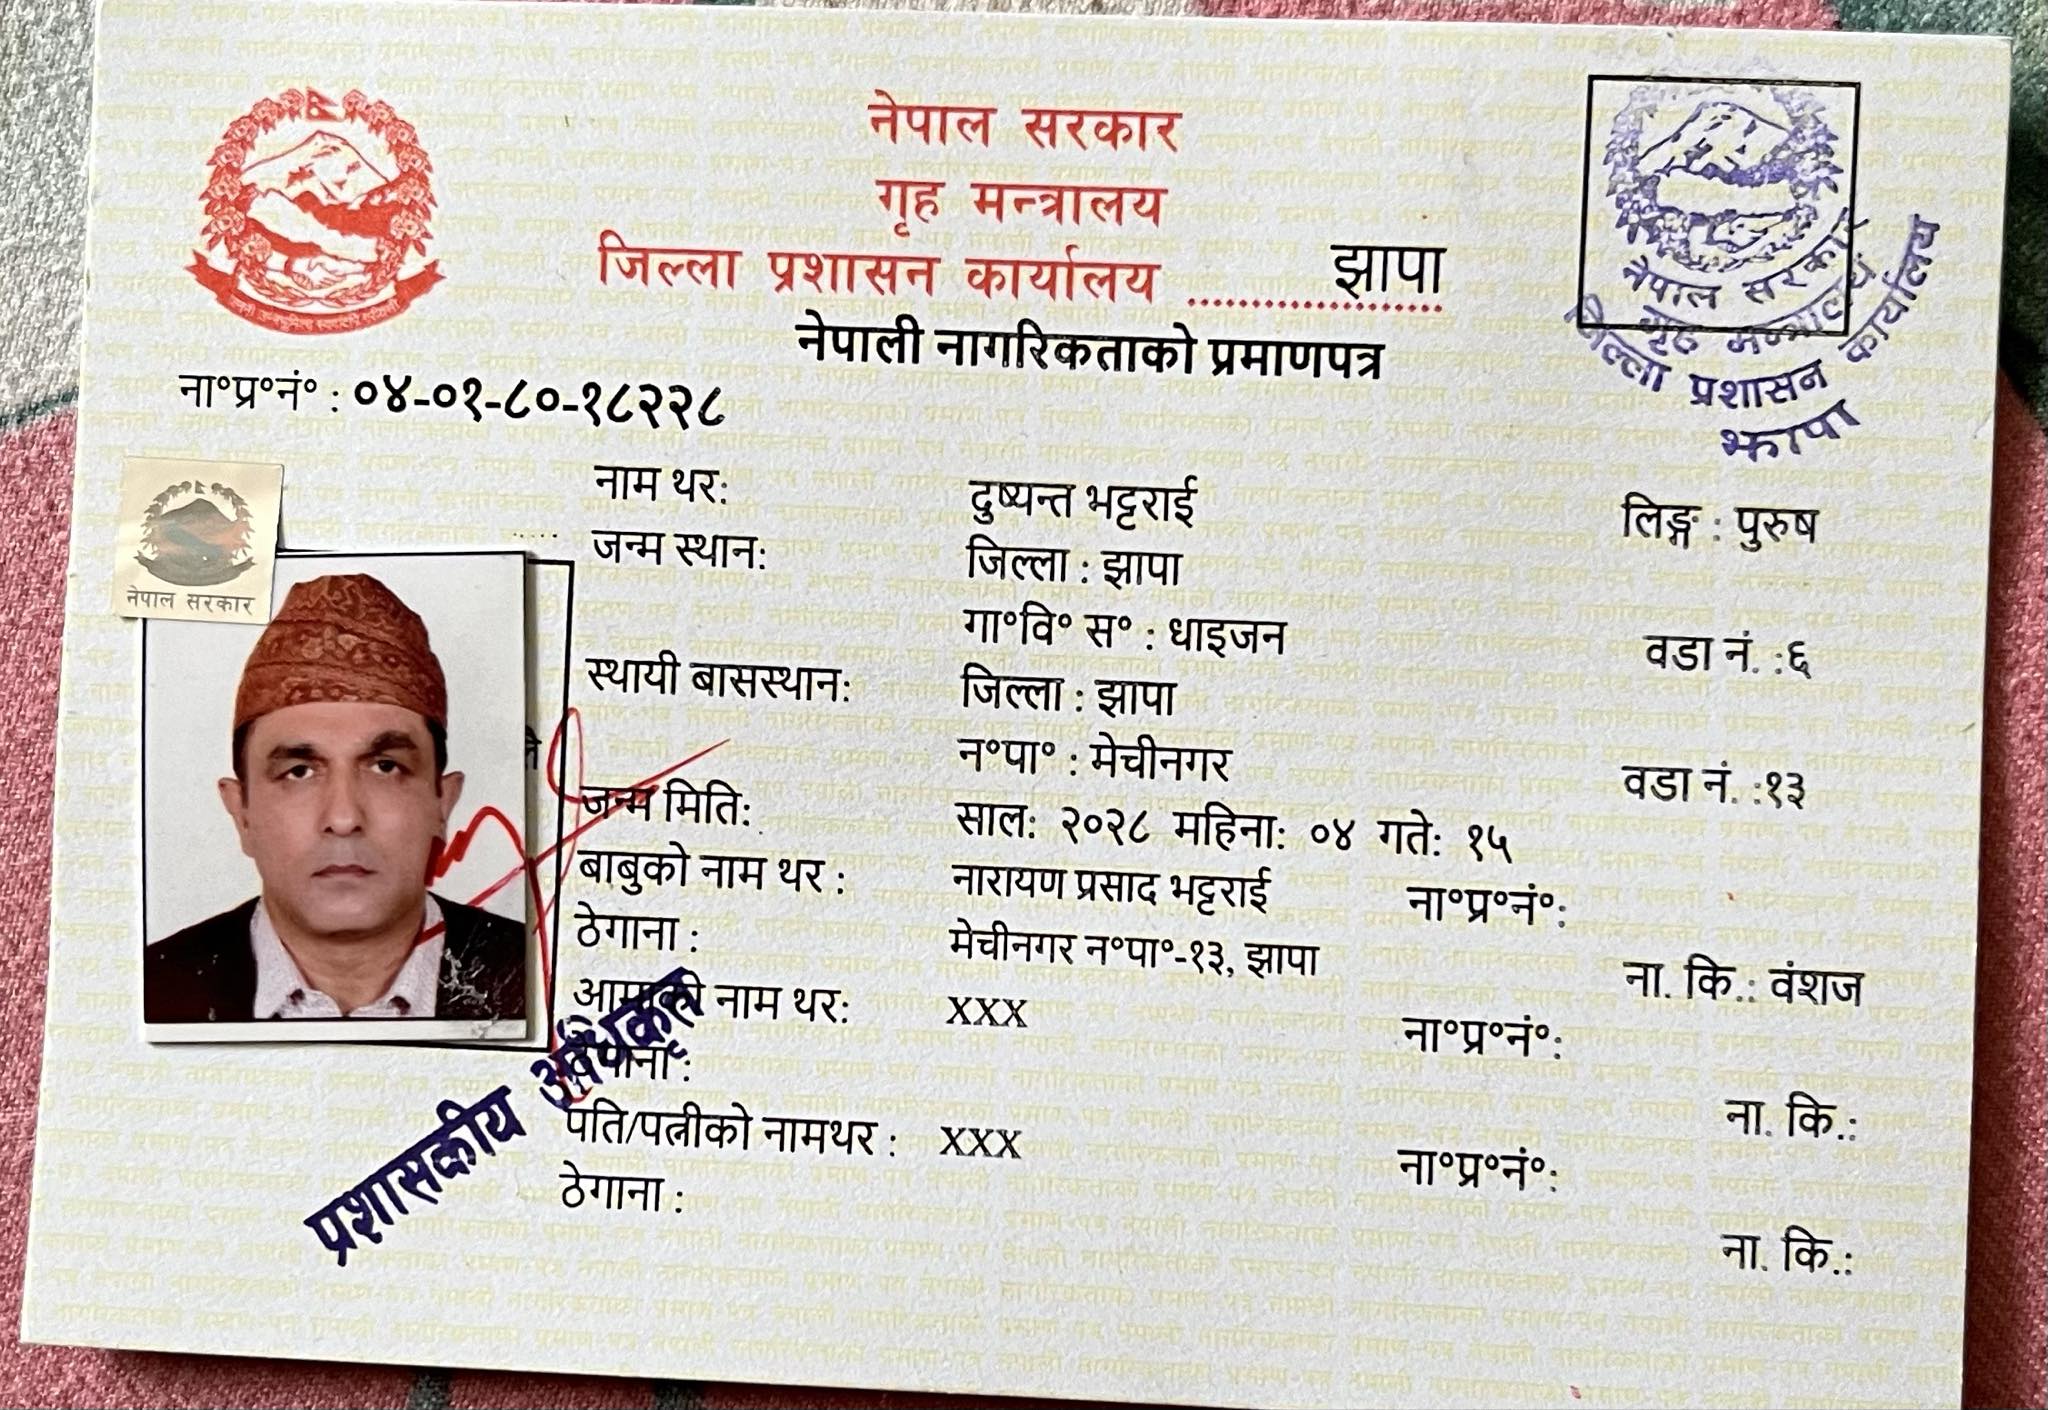 नेपाल सरकार
गृह मन्त्रालय
जिल्ला प्रशासन कार्यालय झापा
नेपाली नागरिकताको प्रमाणपत्र
नेपाल सरकार
गृह मन्त्रालय
जिल्ला प्रशासन कार्यालय
झापा
ना°प्र°नं° : ०४-०१-८०-१८२२८
नेपाल सरकार
नाम थर: दुष्यन्त भट्टराई लिङ्ग : पुरुष
जन्म स्थान: जिल्ला : झापा
गा°वि° स° : धाइजन वडा नं. :६
स्थायी बासस्थान: जिल्ला : झापा
न°पा° : मेचीनगर वडा नं. :१३
जन्म मिति: साल: २०२८ महिना: ०४ गते: १५
बाबुको नाम थर : नारायण प्रसाद भट्टराई ना°प्र°नं°:
ठेगाना : मेचीनगर न°पा°-१३, झापा ना. कि.: वंशज
आमाको नाम थर: XXX ना°प्र°नं°:
ठेगाना : ना. कि.:
पति/पत्नीको नामथर : XXX ना°प्र°नं°:
ठेगाना : ना. कि.:
प्रशासकीय अधिकृत